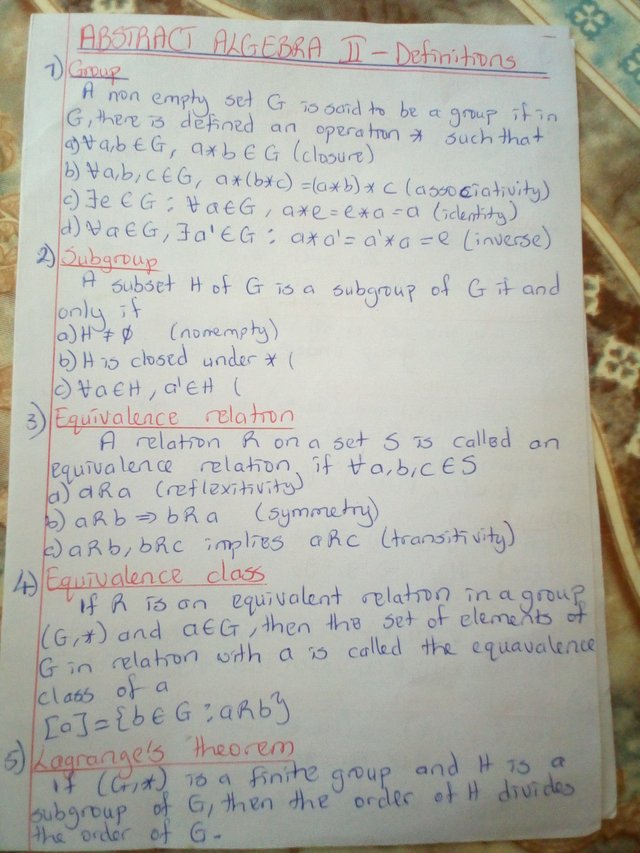 ABSTRACT ALGEBRA II - Definitions
1) Group
A non empty set G is said to be a group if in
G, there is defined an operation * such that
a) ∀a,b ∈ G, a*b ∈ G (closure)
b) ∀a,b,c ∈ G, a*(b*c) = (a*b)*c (associativity)
c) ∃e ∈ G : ∀a∈G, a*e = e*a = a (identity)
d) ∀a∈G, ∃a' ∈ G : a*a' = a'*a = e (inverse)
2) Subgroup
A subset H of G is a subgroup of G if and
only if
a) H ≠ ∅ (nonempty)
b) H is closed under * (
c) ∀a∈H, a'∈H (
3) Equivalence relation
A relation R on a set S is called an
equivalence relation, if ∀a,b,c ∈ S
a) aRa (reflexitivity)
b) aRb ⇒ bRa (symmetry)
c) aRb, bRc implies aRc (transitivity)
4) Equivalence class
If R is an equivalent relation in a group
(G,*) and a∈G, then the set of elements of
G in relation with a is called the equavalence
class of a
[a] = {b ∈ G : aRb}
5) Lagrange's theorem
If (G,*) is a finite group and H is a
subgroup of G, then the order of H divides
the order of G.